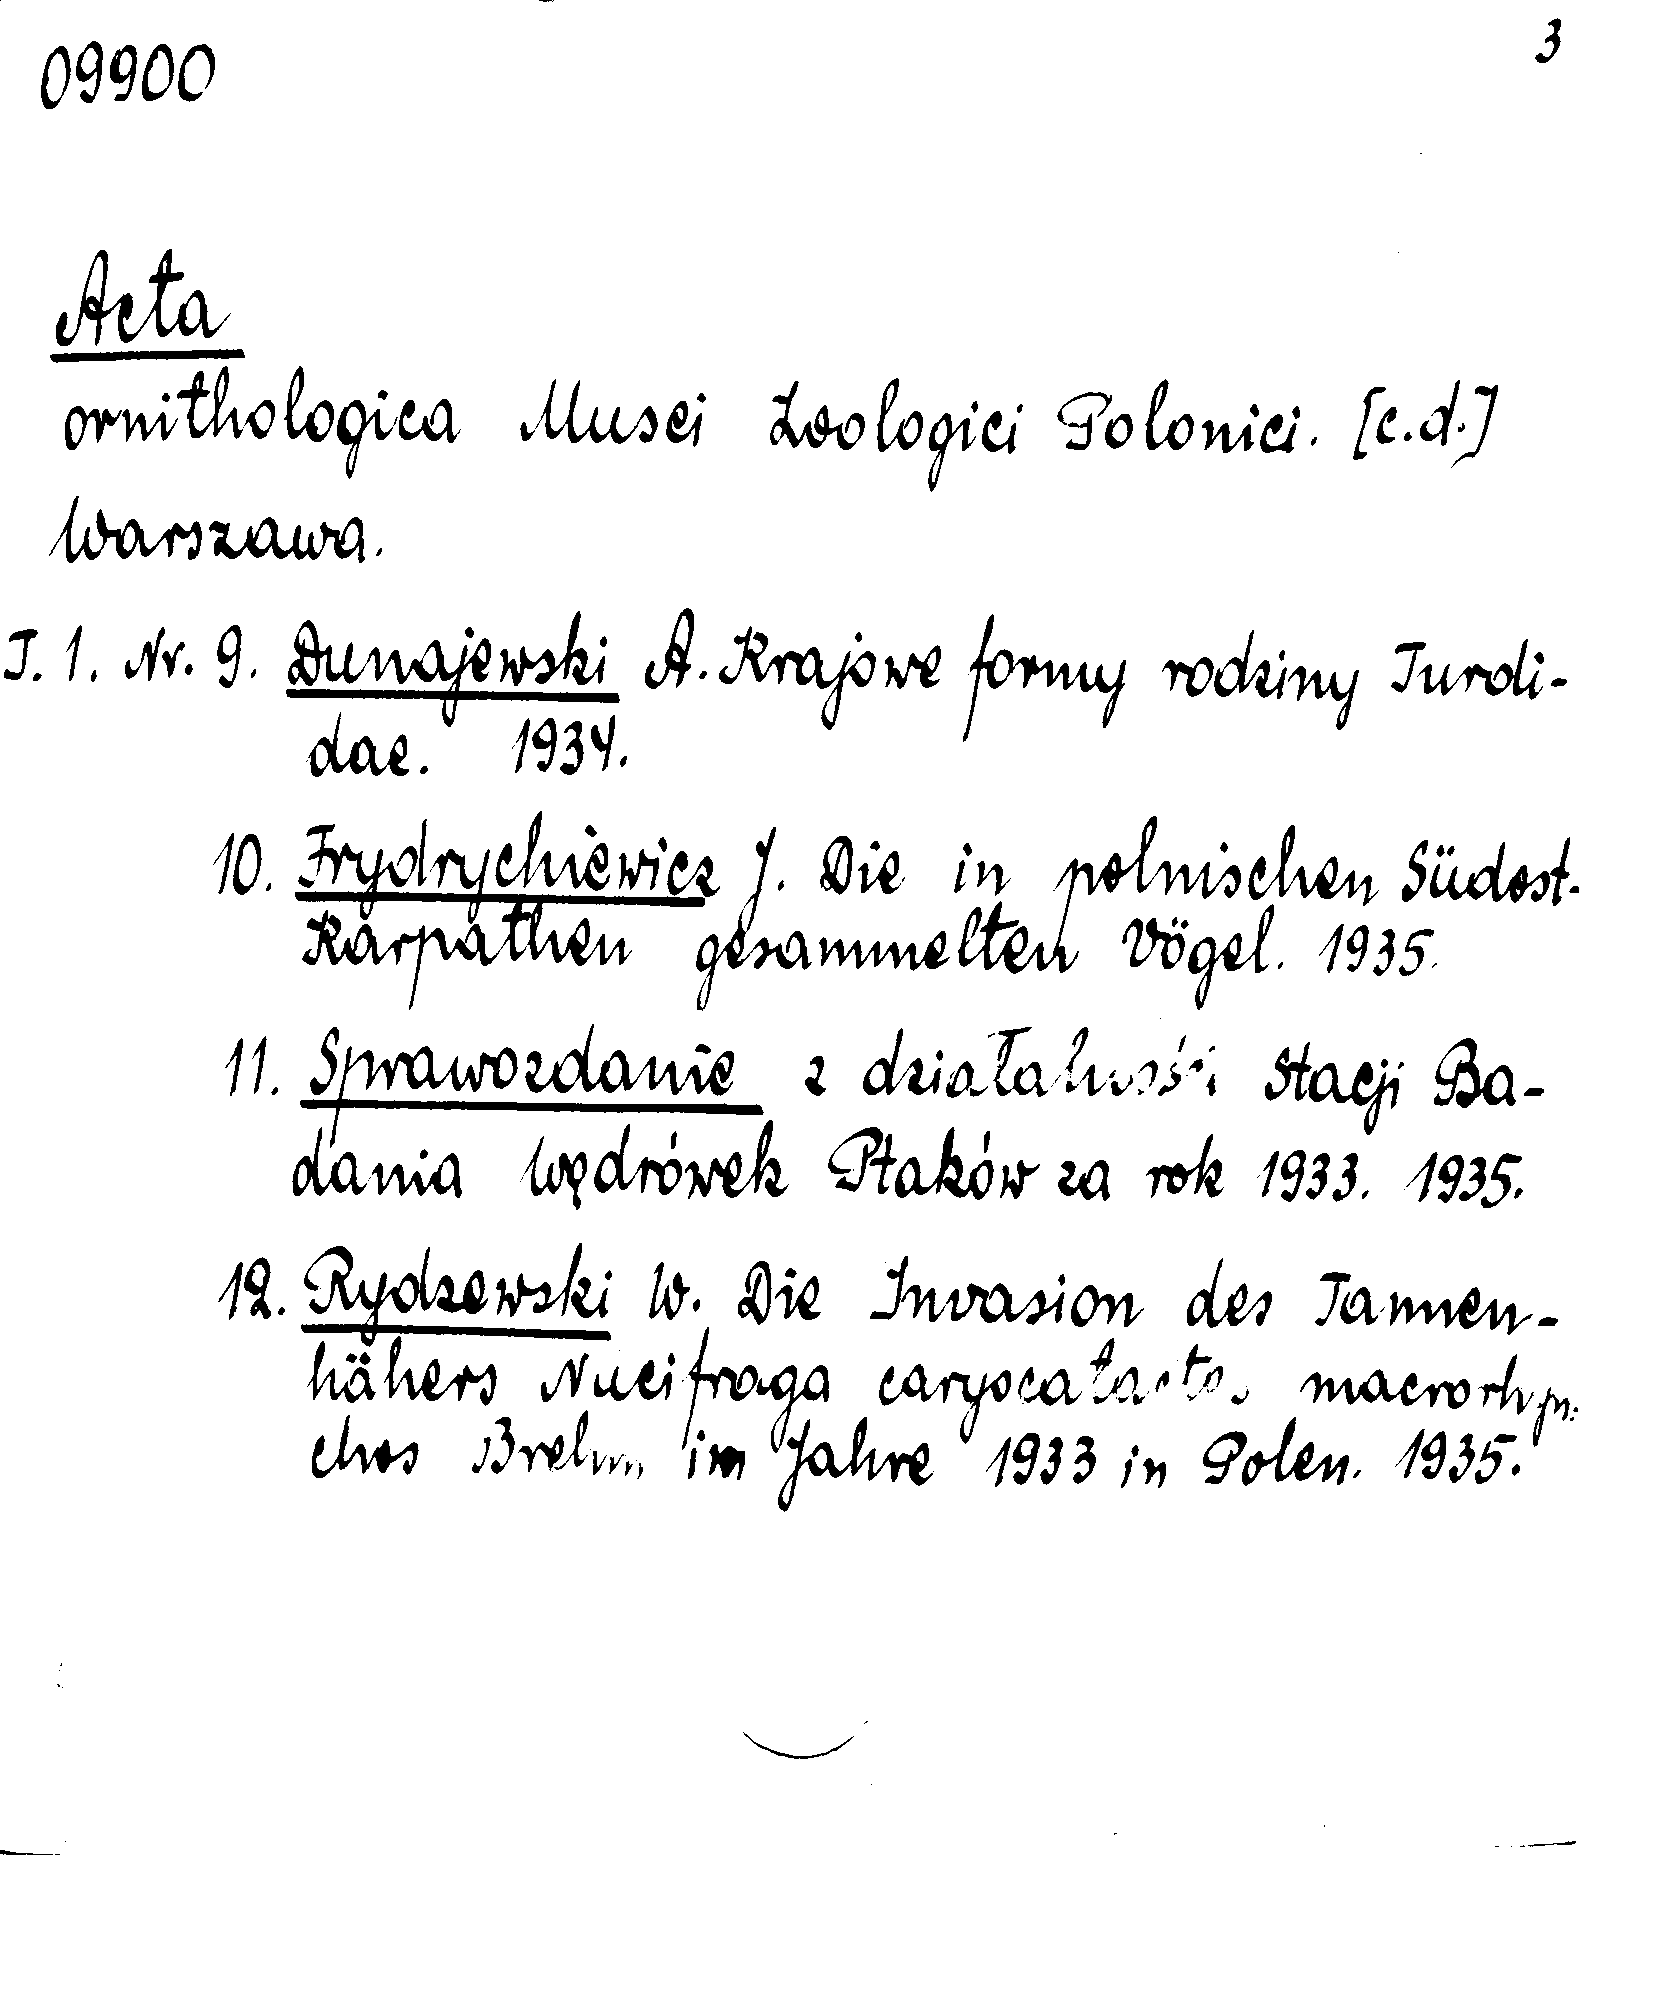 09900
3
Acta
ornithologica Musei Zoologici Polonici. [c.d.]
Warszawa.
T. 1. Nr. 9. Dunajewski A. Krajowe formy rodziny Turdi-
dae. 1934.
10. Frydrychiewicz J. Die in polnischen Südost-
Karpathen gesammelten Vögel. 1935.
11. Sprawozdanie z działalności Stacji Ba-
dania Wędrówek Ptaków za rok 1933. 1935.
12. Rydzewski W. Die Invasion des Tannen-
hähers Nucifraga caryocatactes macrorhyn-
chos Brehm im Jahre 1933 in Polen. 1935.